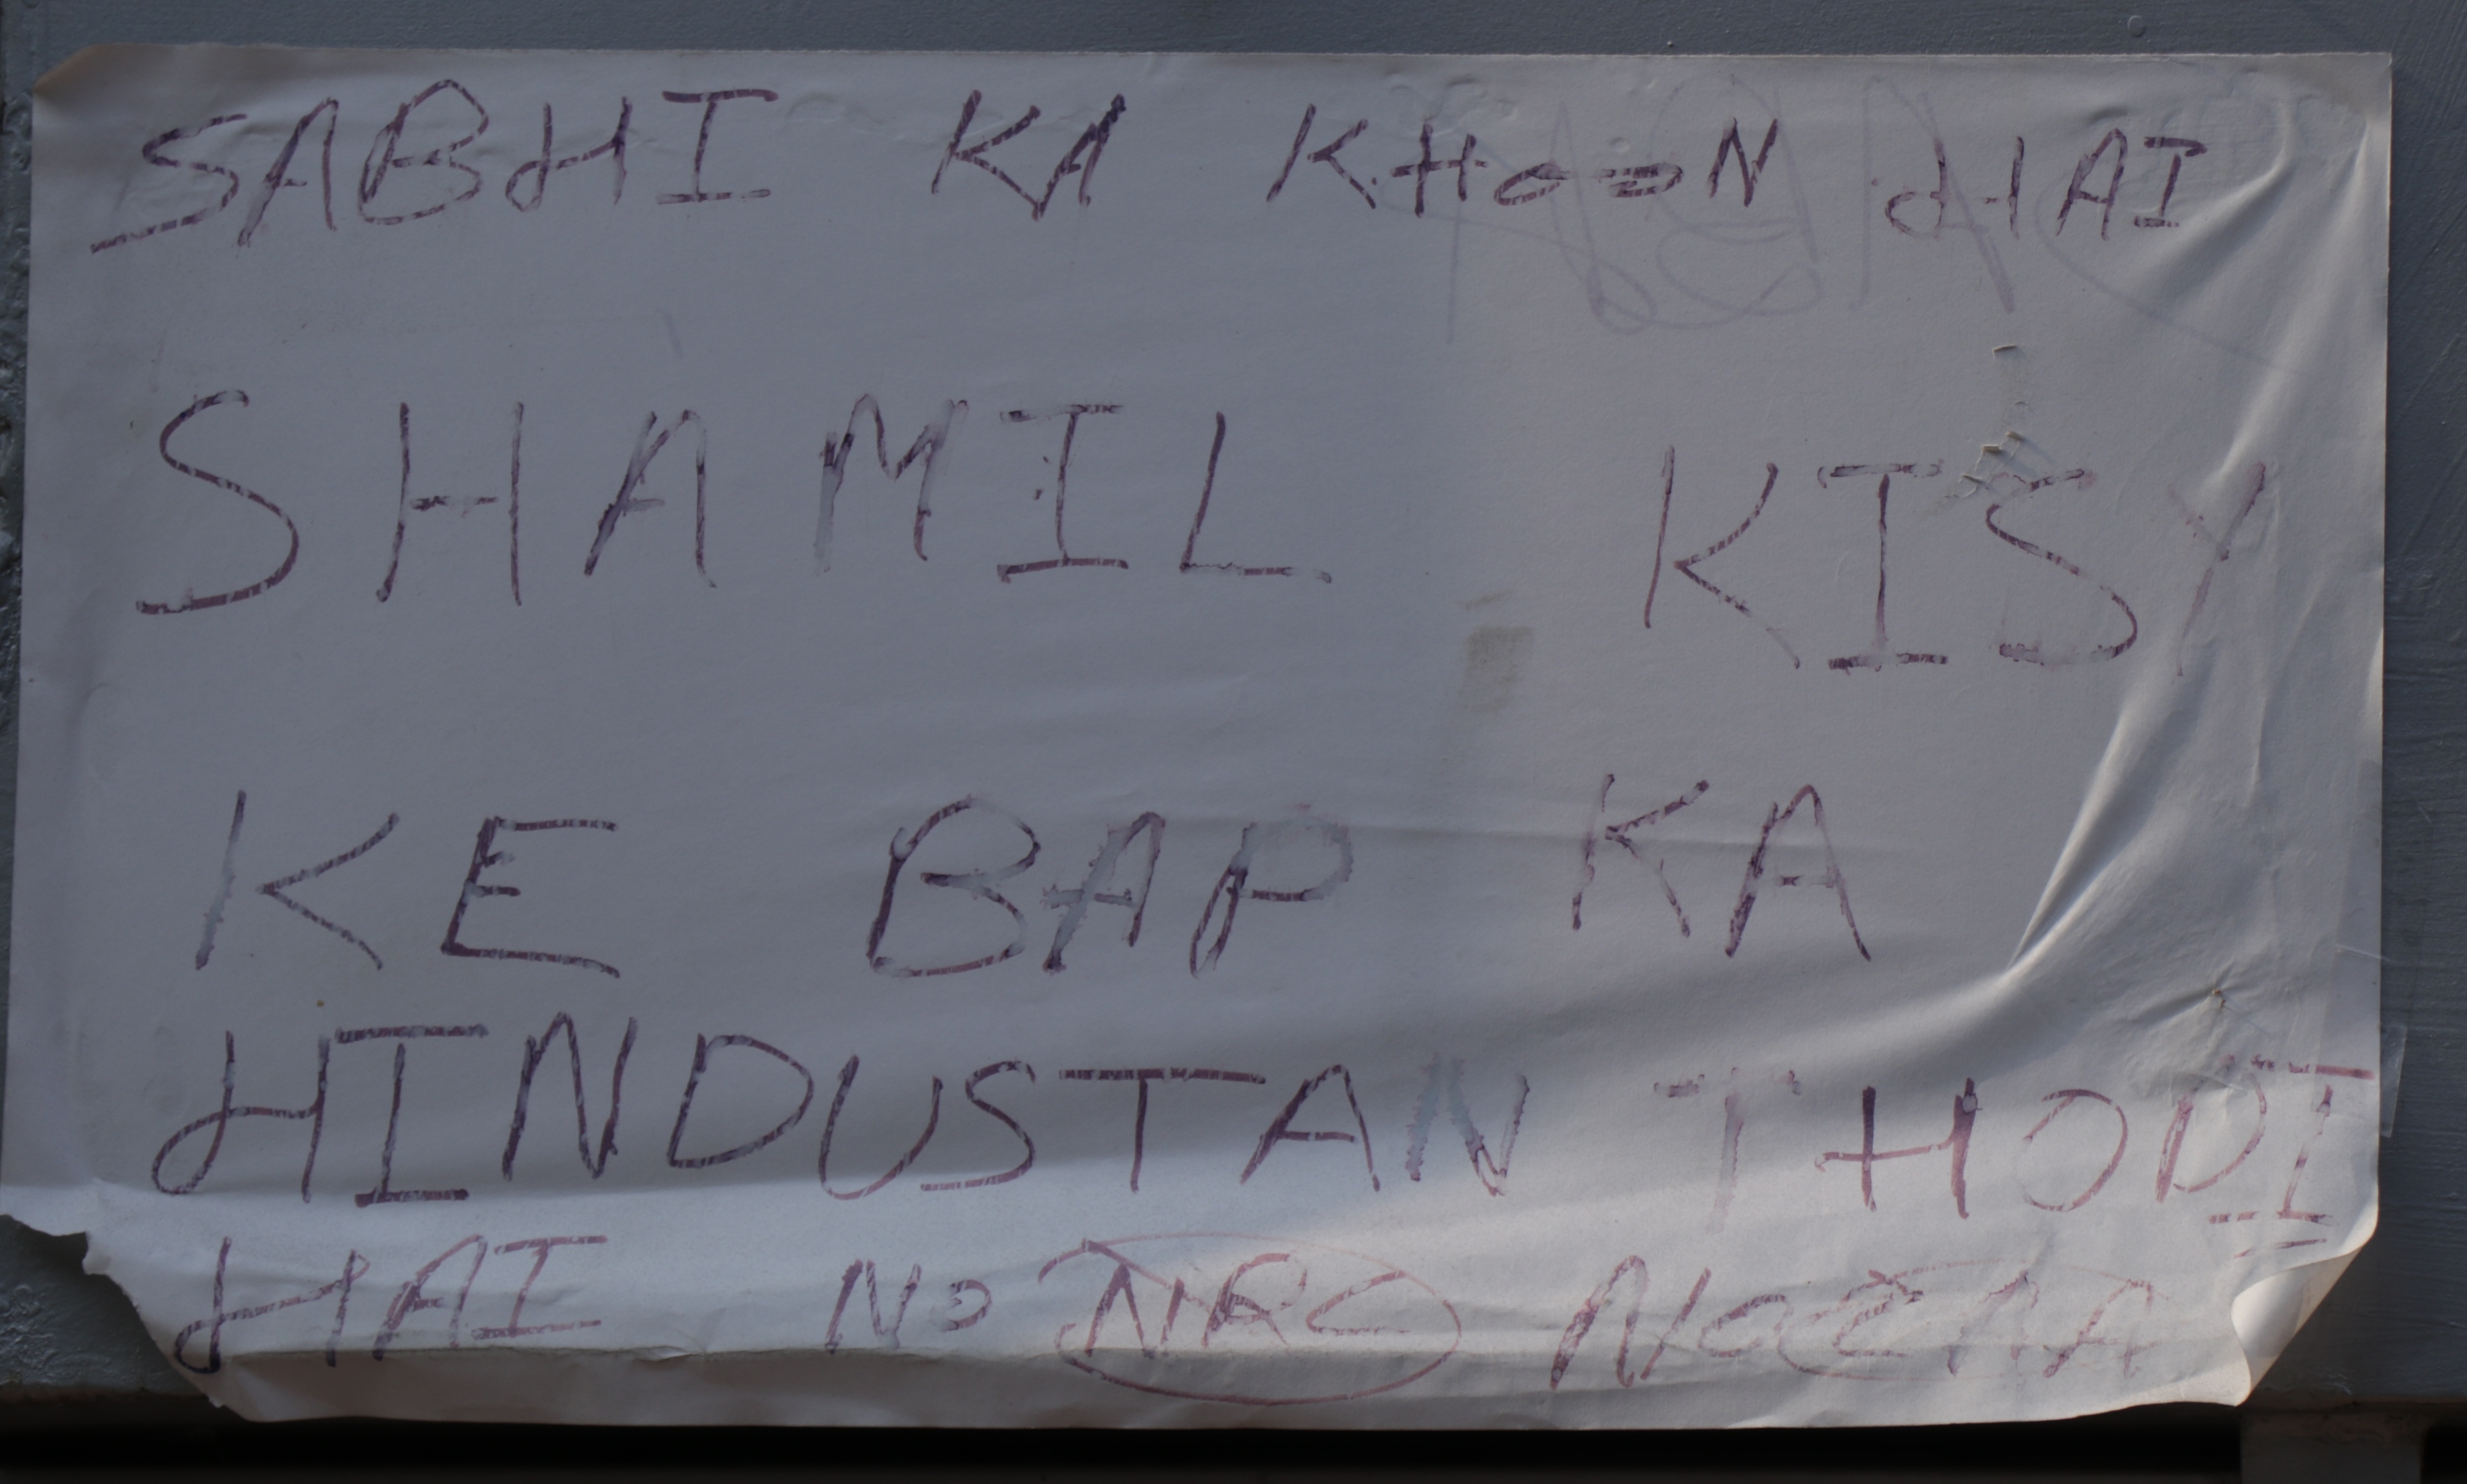 SABHI KA KHOON HAI
SHAMIL KISY
KE BAP KA
HINDUSTAN THODI
HAI NO NRC NO CAA